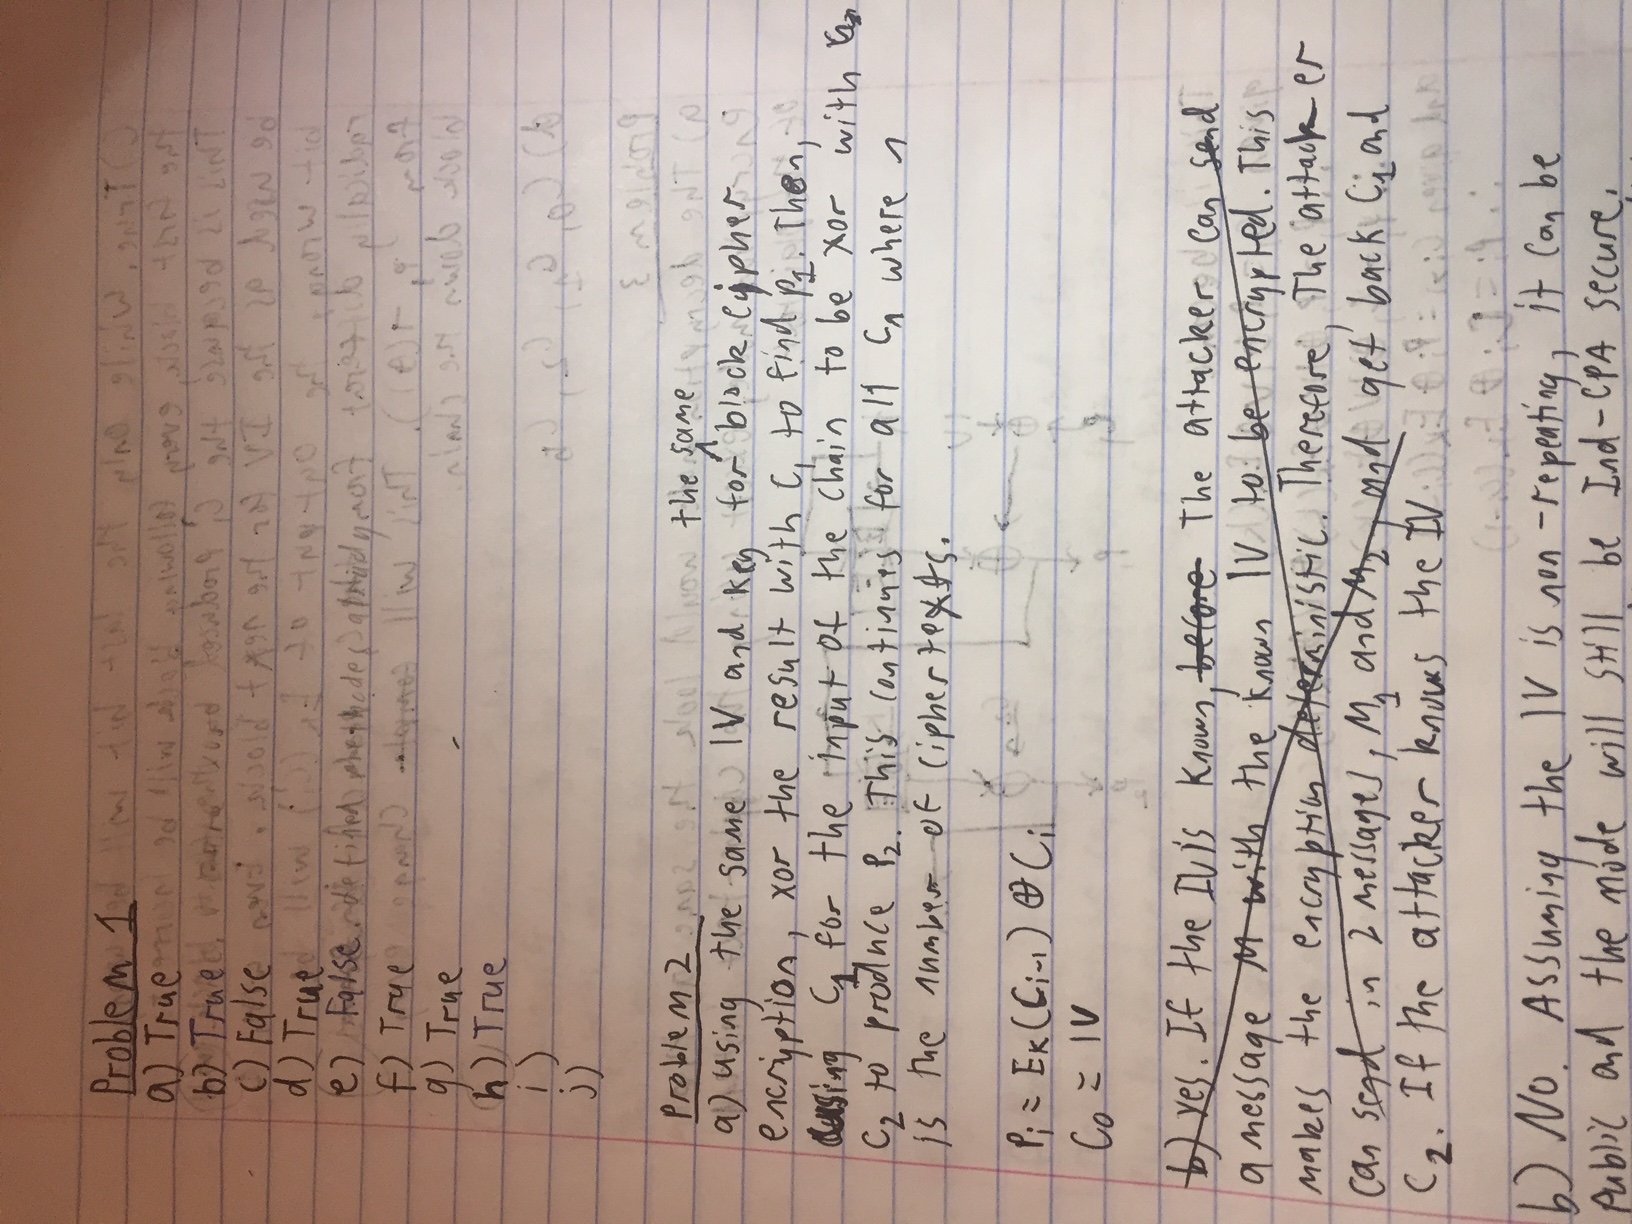 Problem 1
a) True
b) True
c) False
d) True
e) False.
f) True
g) True
h) True
i)
j)
Problem 2
the same
a) using the same IV and key for block cipher
encription, xor the result with C1 to find P1. Then,
using C1 for the input of the chain to be xor with
C2 to produce P2. This continues for all Cn where n
is the number of ciphertexts.
Pi = EK(Ci-1) ⊕ Ci
C0 = IV
b) Yes. If the IV is known, before The attacker can send
a message M with the known IV to be encrypted. This
makes the encryption deterministic. Therefore, The attacker
can send in 2 messages, M1 and M2, and get back C1 and
C2. If the attacker knows the IV
b) No. Assuming the IV is non-repeating, it can be
Public and the mode will still be Ind-CPA secure.